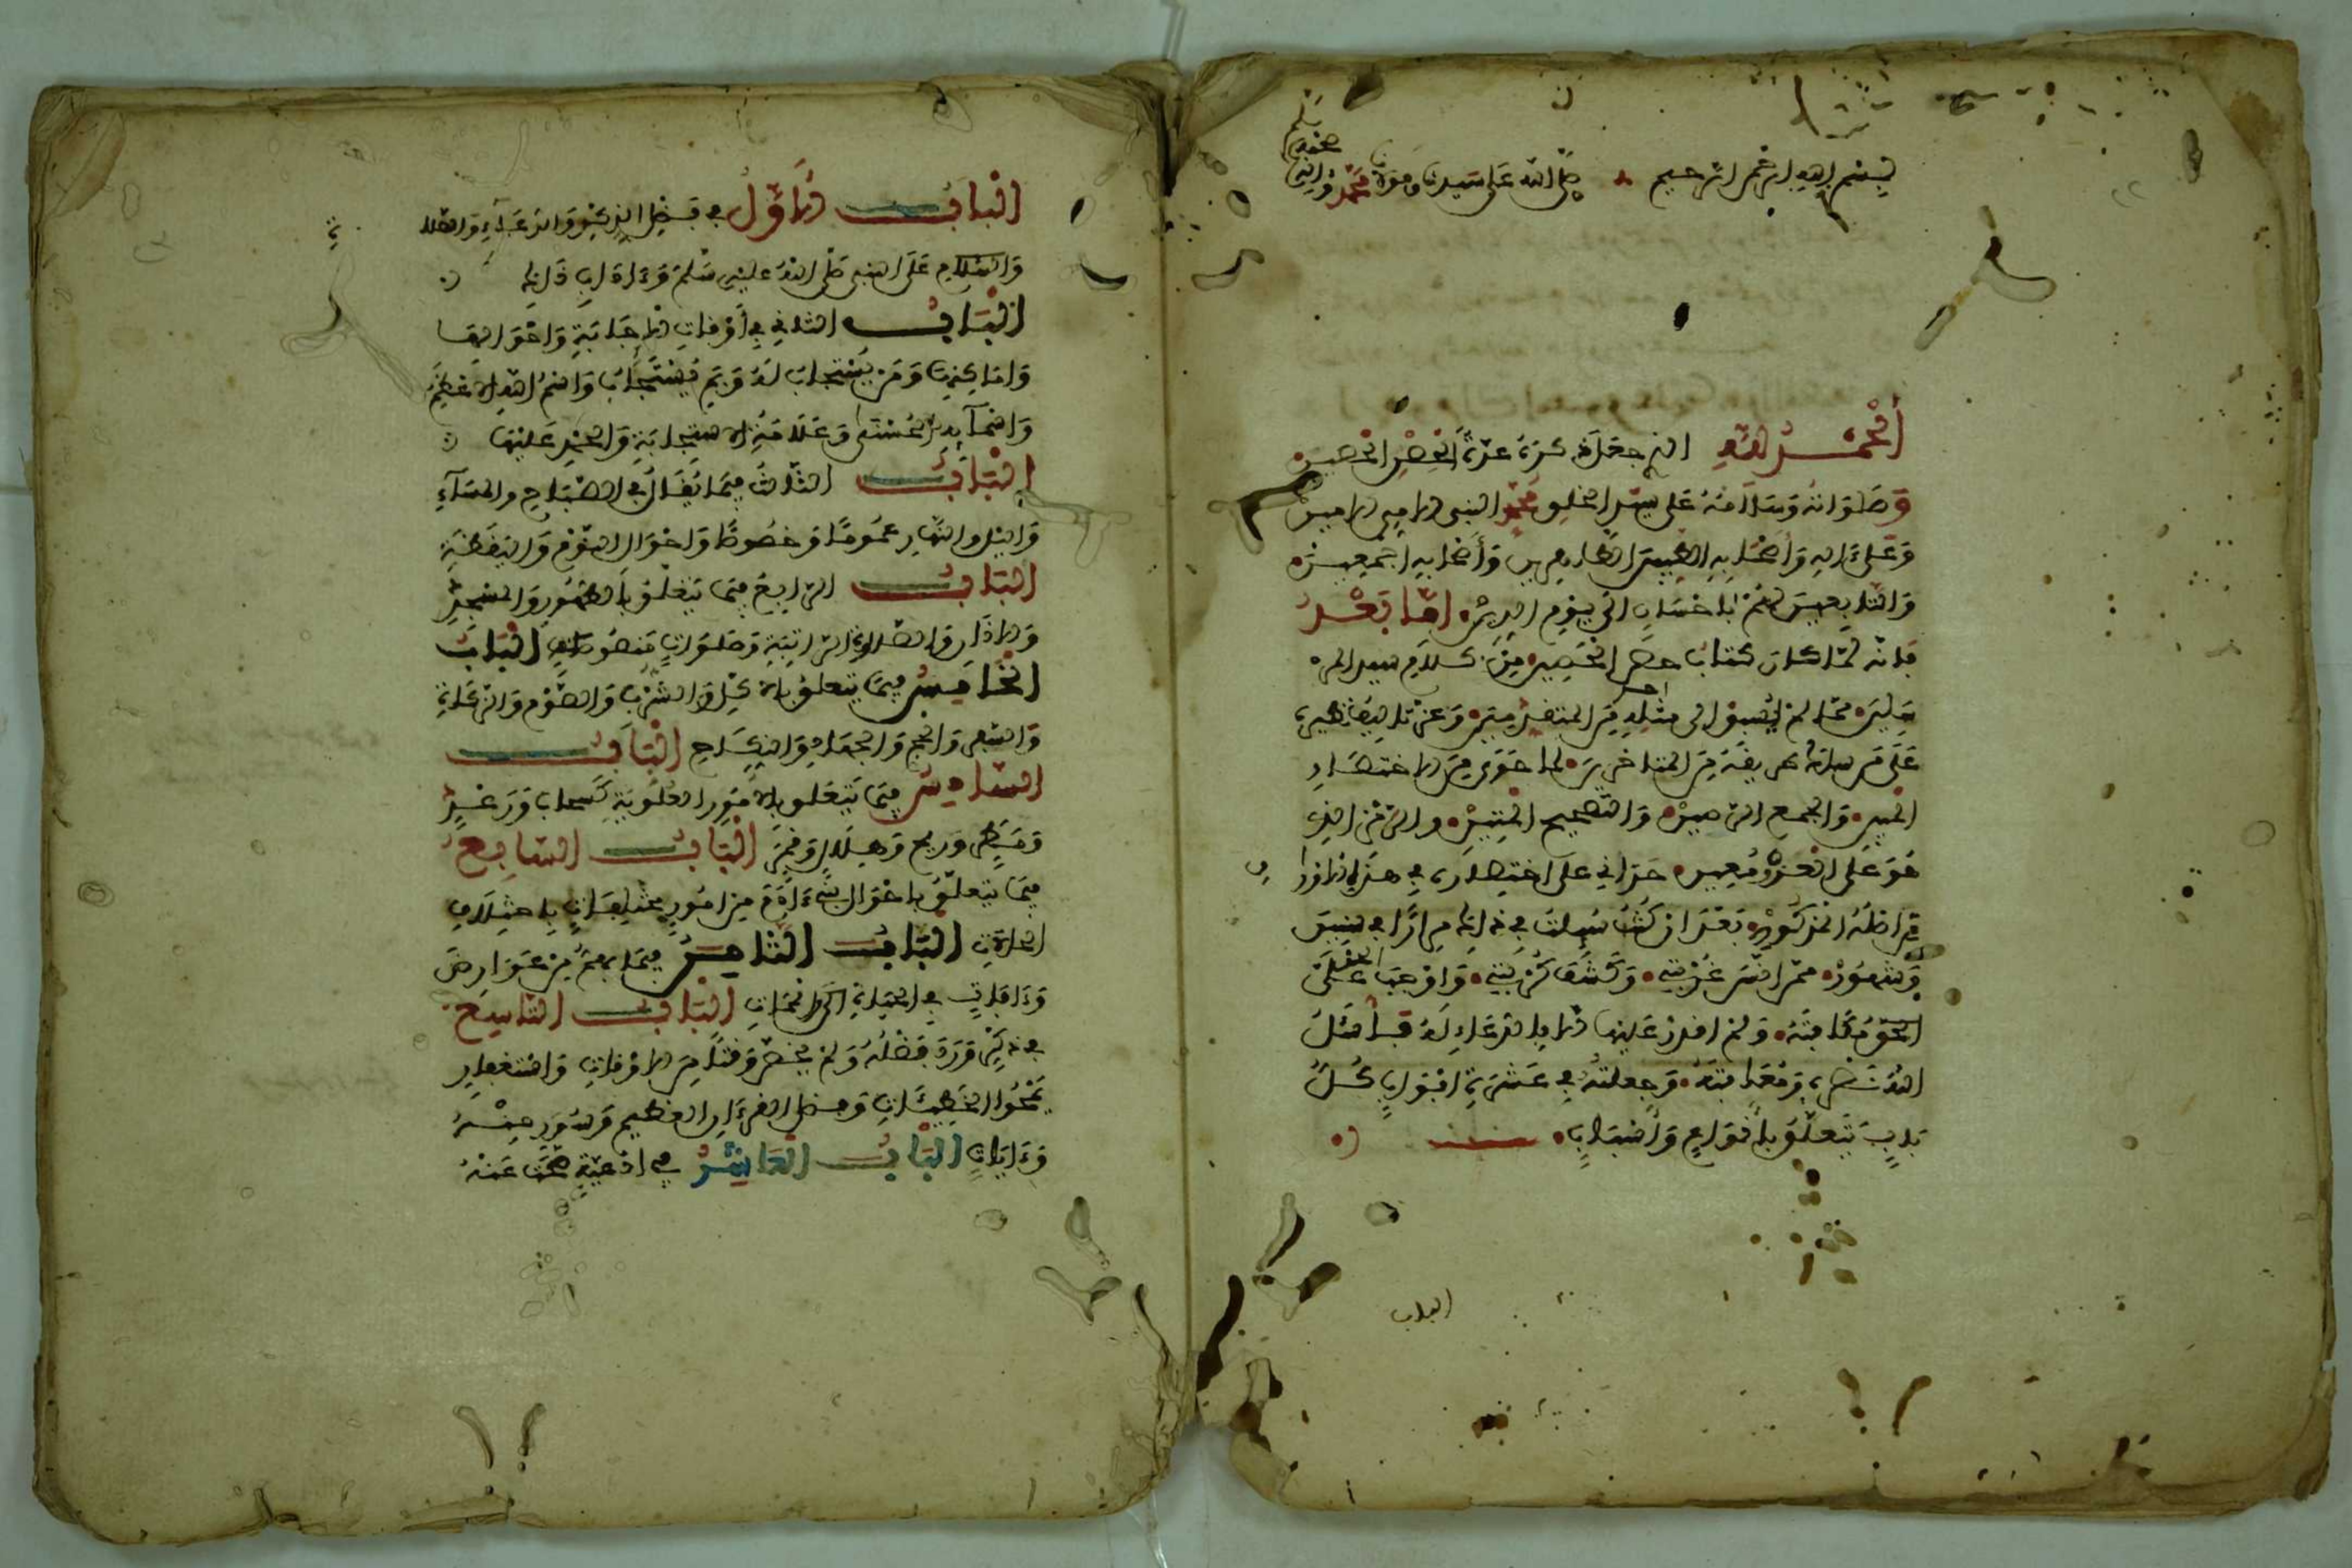 بسم الله الرحمن الرحيم صلى الله على سيدنا ومولانا محمد وءاله
وصحبه وسلم
الحمد لله الذي جعل ذكره عدة الحصن الحصين
وصلواته وسلامه على سيد الخلق محمد النبي الامي الامين
وعلى ءاله وأصحابه الطيبين الطاهرين وأصحابه اجمعين
والتابعين لهم بإحسان الى يوم الدين اما بعد
فانه لما كان كتاب حصن الحصين من كلام سيد المر
سلين مما لم يسبق الى مثله احد من المتقدمين وعز تاليف نظيره
على من سلك طريقه من المتاخرين لما حوى من الاختصار
المبين والجمع الرصين والتصحيح المتين والرمز الذي
هو على العزو معين حداني على اختصاره في هذه الاوراق
من اصله المذكور بعد ان كنت سئلت في ذلك مرارا في سنين
وشهور ممن انس غربتي وكشف كربتي واوجب الحق علي
الحق مكافاته ولم اقدر عليها الا بالدعاء له فأسأل
الله نصره ومعافاته وجعلته في عشرة ابواب كل
باب يتعلق بأنواع وأسباب
الباب
الباب الاول في فضل الذكر والدعاء والصلاة
والسلام على النبي صلى الله عليه وسلم وءاداب ذلك
الباب الثاني في أوقات الاجابة واحوالها
واماكنها ومن يستجاب له وبم يستجاب واسم الله الاعظم
واسمآئه الحسنى وعلامة الاستجابة والحمد عليها
الباب الثالث فيما يقال في الصباح والمسآء
والليل والنهار عموما وخصوصا واحوال النوم واليقظة
الباب الرابع فيما يتعلق بالطهور والمسجد
والاذان والصلاة الراتبة وصلوات منصوصات الباب
الخامس فيما يتعلق بالاكل والشرب والصوم والزكاة
والسفر والحج والجهاد والنكاح الباب
السادس فيما يتعلق بالامور العلوية كسحاب ورعد
ومطر وريح وهلال وقمر الباب السابع
فيما يتعلق باحوال بني ءادم من امور مختلفات باختلاف
الحالات الباب الثامن فيما يهم من عوارض
وءافات في الحياة الى الممات الباب التاسع
في ذكر ورد فضله ولم يخص وقتا من الاوقات واستغفار
يمحوا الخطيئات وفضل القرءان العظيم وسور منه
وءايات الباب العاشر في ادعية صحت عنه